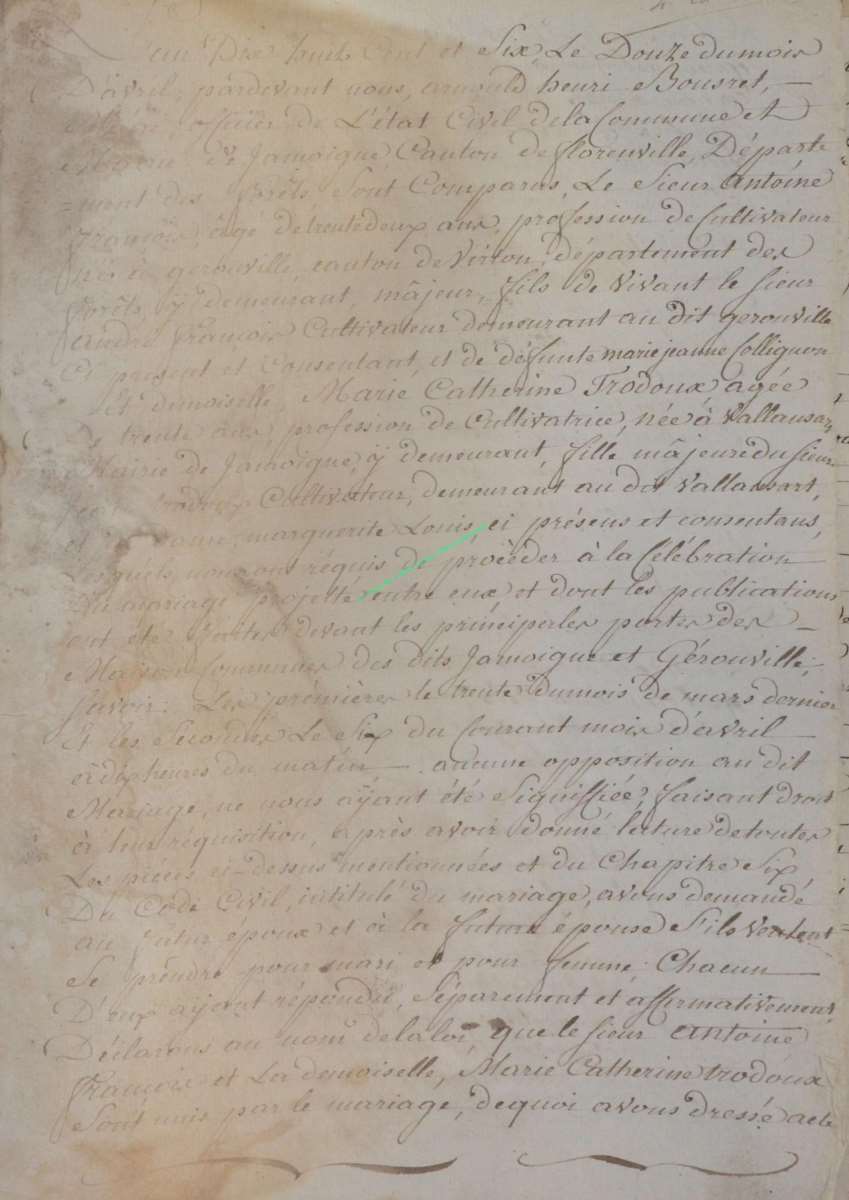 L'an Dix huit Cent et Six, Le Douze du mois
D'avril, pardevant nous, arnould henri Bousret, —
officier de L'état Civil de la Commune et
de Jamoigne, Canton de florenville, Départe
=ment des forêts, Sont Comparus, Le Sieur Antoine
françois, âgé de trente deux ans, profession de Cultivateur
né à gerouville, canton de Virton, département des
forêts, y demeurant, mâjeur, fils de Vivant le sieur
andré françois Cultivateur demeurant au dit gerouville
Ci present et Consentant, et de défunte marie jeanne Collignon
Et demoiselle Marie Catherine Trodoux agée
De trente ans, profession de Cultivatrice, née à Vallansart
Mairie de Jamoigne, ÿ demeurant, fille mâjeure du sieur
trodoux Cultivateur, demeurant au dit Vallansart,
et marguerite Louis, ci présens et consentans,
Lesquels nous ont réquis de procèder à la Célébration
Du mariage projetté entre eux et dont les publications
ont été faites devant les principales portes des —
Maisons Communes des dits Jamoigne et Gérouville,
Savoir: Les premières le trente du mois de mars dernier
Et les Secondes Le Six du Courant mois d'avril
à dix heures du matin — aucune opposition au dit
Mariage, ne nous aÿant été Signiffiée, faisant droit
à leur réquisition, après avoir donné lecture de toutes
Les pièces ci-dessus mentionnées et du Chapitre Six
Du Code Civil, intitulé du mariage, avons demandé
au futur époux et à la future épouse S'ils veulent
Se prendre pour mari et pour femme: Chacun —
D'eux aÿant répondu, Séparement et affirmativement,
Déclarons au nom de la loi que le sieur antoine
françois et La demoiselle, Marie Catherine trodoux
Sont unis par le mariage, de quoi avons dressé acte